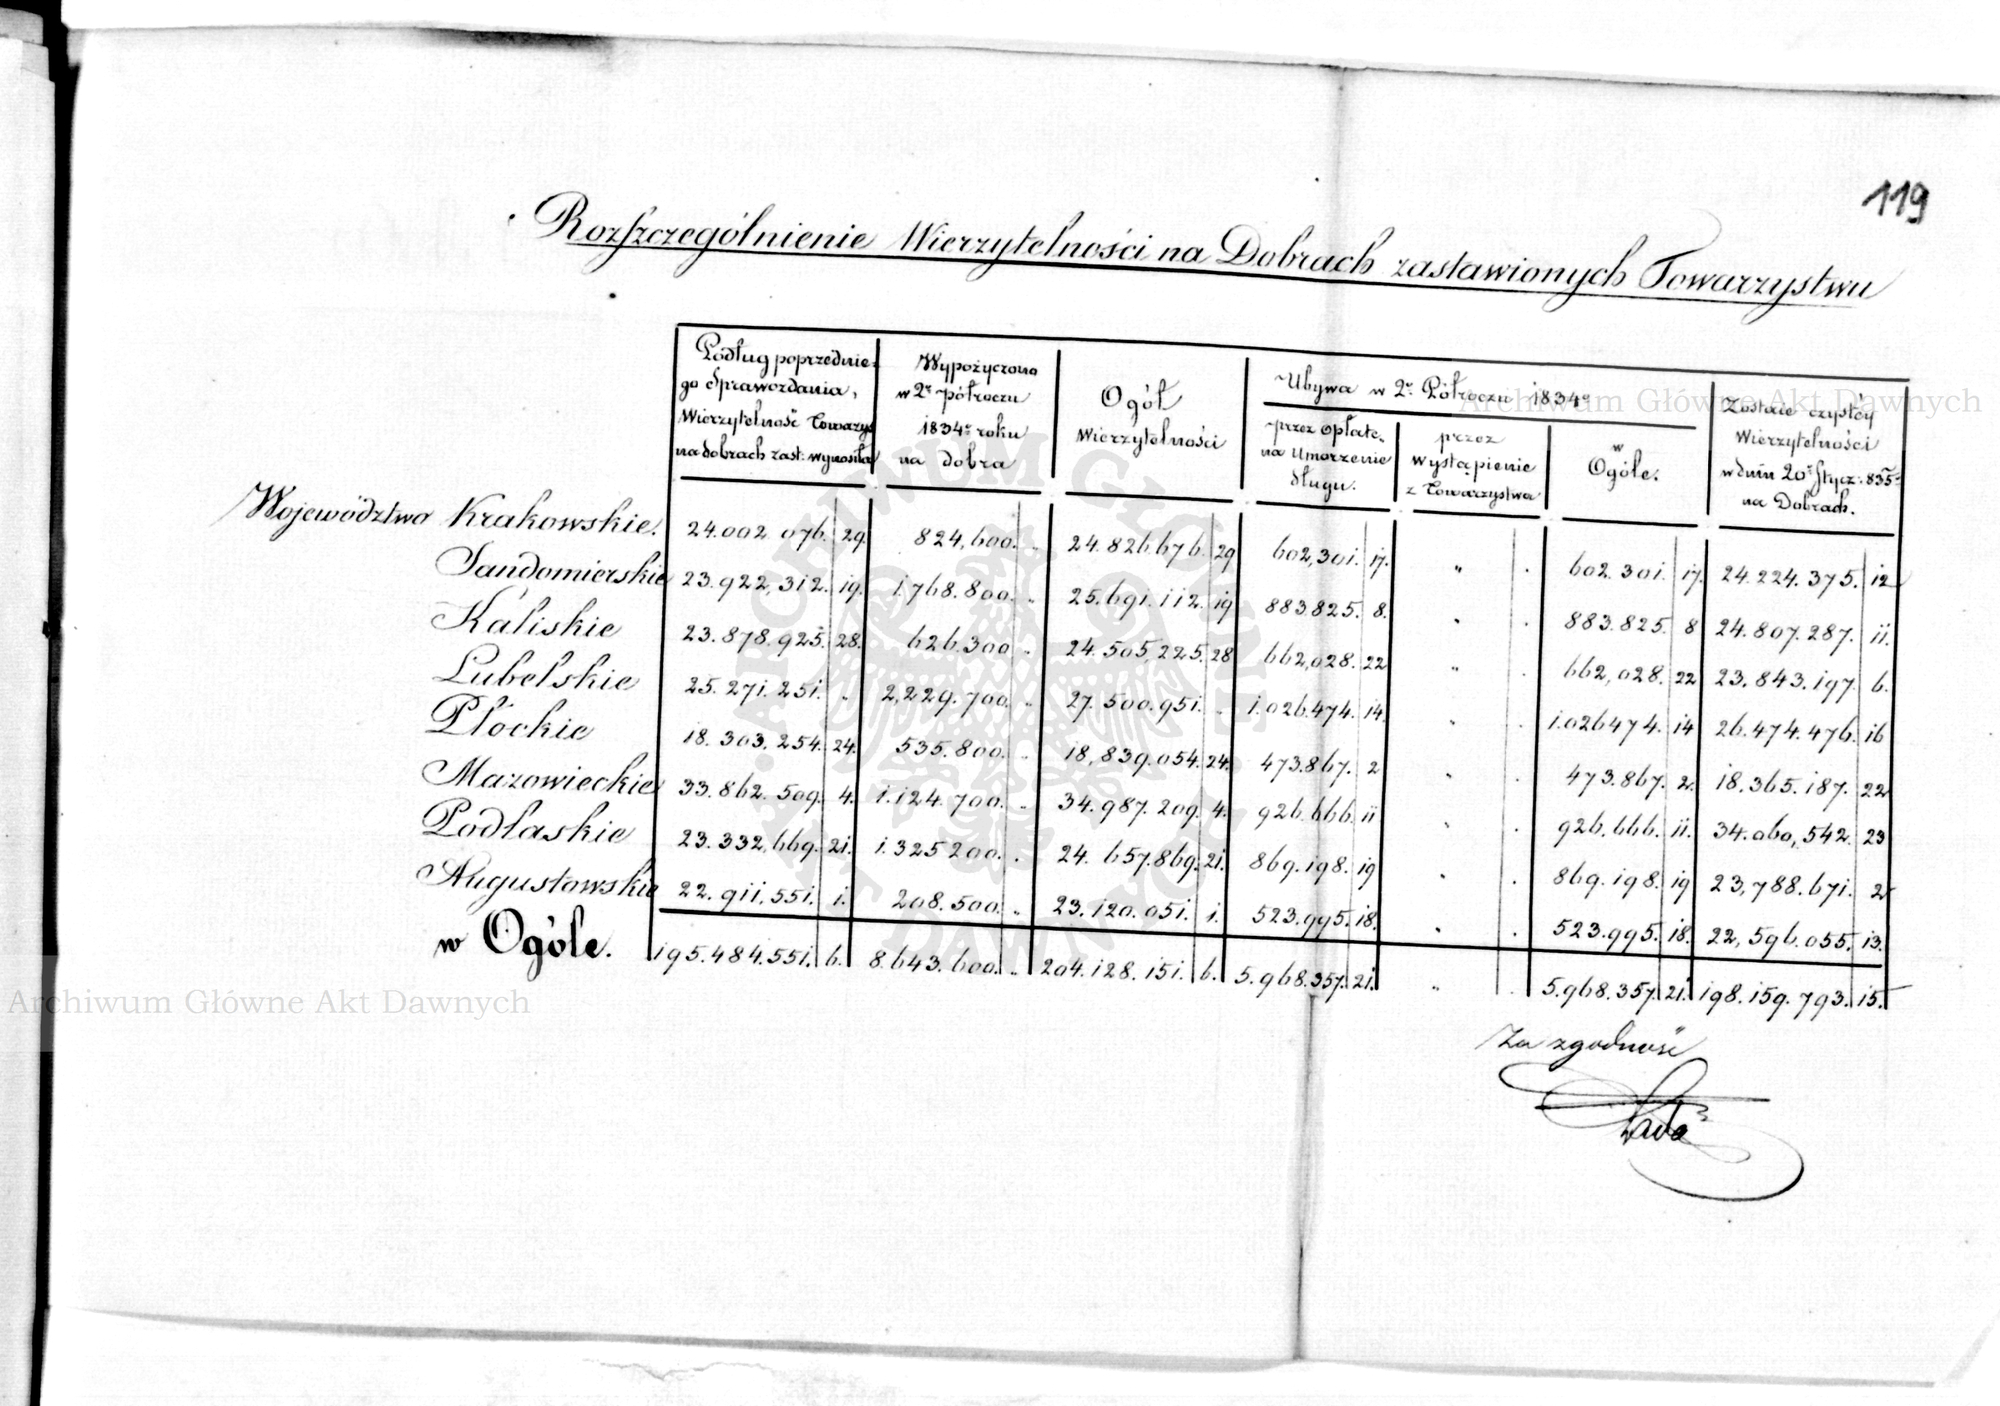 119
Rozszczególnienie Wierzytelności na Dobrach zastawionych Towarzystwu
Podług poprzednie-
go Sprawozdania,
Wierzytelność Towarzys
na dobrach zast: wynosiła
Wypożyczono
w 2m półroczu
1834o roku
na dobra
Ogół
Wierzytelności
Ubywa w 2m Półroczu 1834o
przez opłatę
na Umorzenie
długu.
przez
wystąpienie
z Towarzystwa
w
Ogóle.
Zostaie czystéy
Wierzytelności
w dniu 20m Stycz: 835
na Dobrach.
Województwo Krakowskie. 24.002.076. 29. 824,600. „ 24.826.676. 29 602,301. 17. „ . 602.301. 17. 24.224.375. 12
Sandomierskie 23.922,312. 19. 1.768.800. „ 25.691.112. 19 883.825. 8. „ . 883.825. 8 24.807.287. 11.
Kaliskie 23.878.925. 28. 626.300 „ 24.505,225. 28 662,028. 22 „ . 662,028. 22 23.843.197. 6.
Lubelskie 25.271.251. „ 2,229.700. „ 27.500.951. „ 1.026.474. 14. „ . 1.026474. 14 26.474.476. 16
Płockie 18.303.254. 24. 535.800. „ 18,839.054. 24. 473.867. 2 „ . 473.867. 2. 18.365.187. 22
Mazowieckie 33.862.509. 4. 1.124.700. „ 34.987.209. 4. 926.666. 11 „ . 926.666. 11. 34.060,542. 23
Podlaskie 23.332,669. 21. 1.325200. „ 24.657.869. 21. 869.198. 19 „ . 869.198. 19 23,788.671. 2
Augustowskie 22.911,551. 1. 208.500. „ 23.120.051. 1. 523.995. 18. „ . 523.995. 18. 22,596.055. 13.
w Ogóle. 195.484.551. 6. 8.643.600. „ 204.128.151. 6. 5.968.357. 21. „ . 5.968.357. 21. 198.159.793. 15.
Za zgodność
Archiwum Główne Akt Dawnych
Archiwum Główne Akt Dawnych
ARCHIWUM GŁÓWNE AKT DAWNYCH